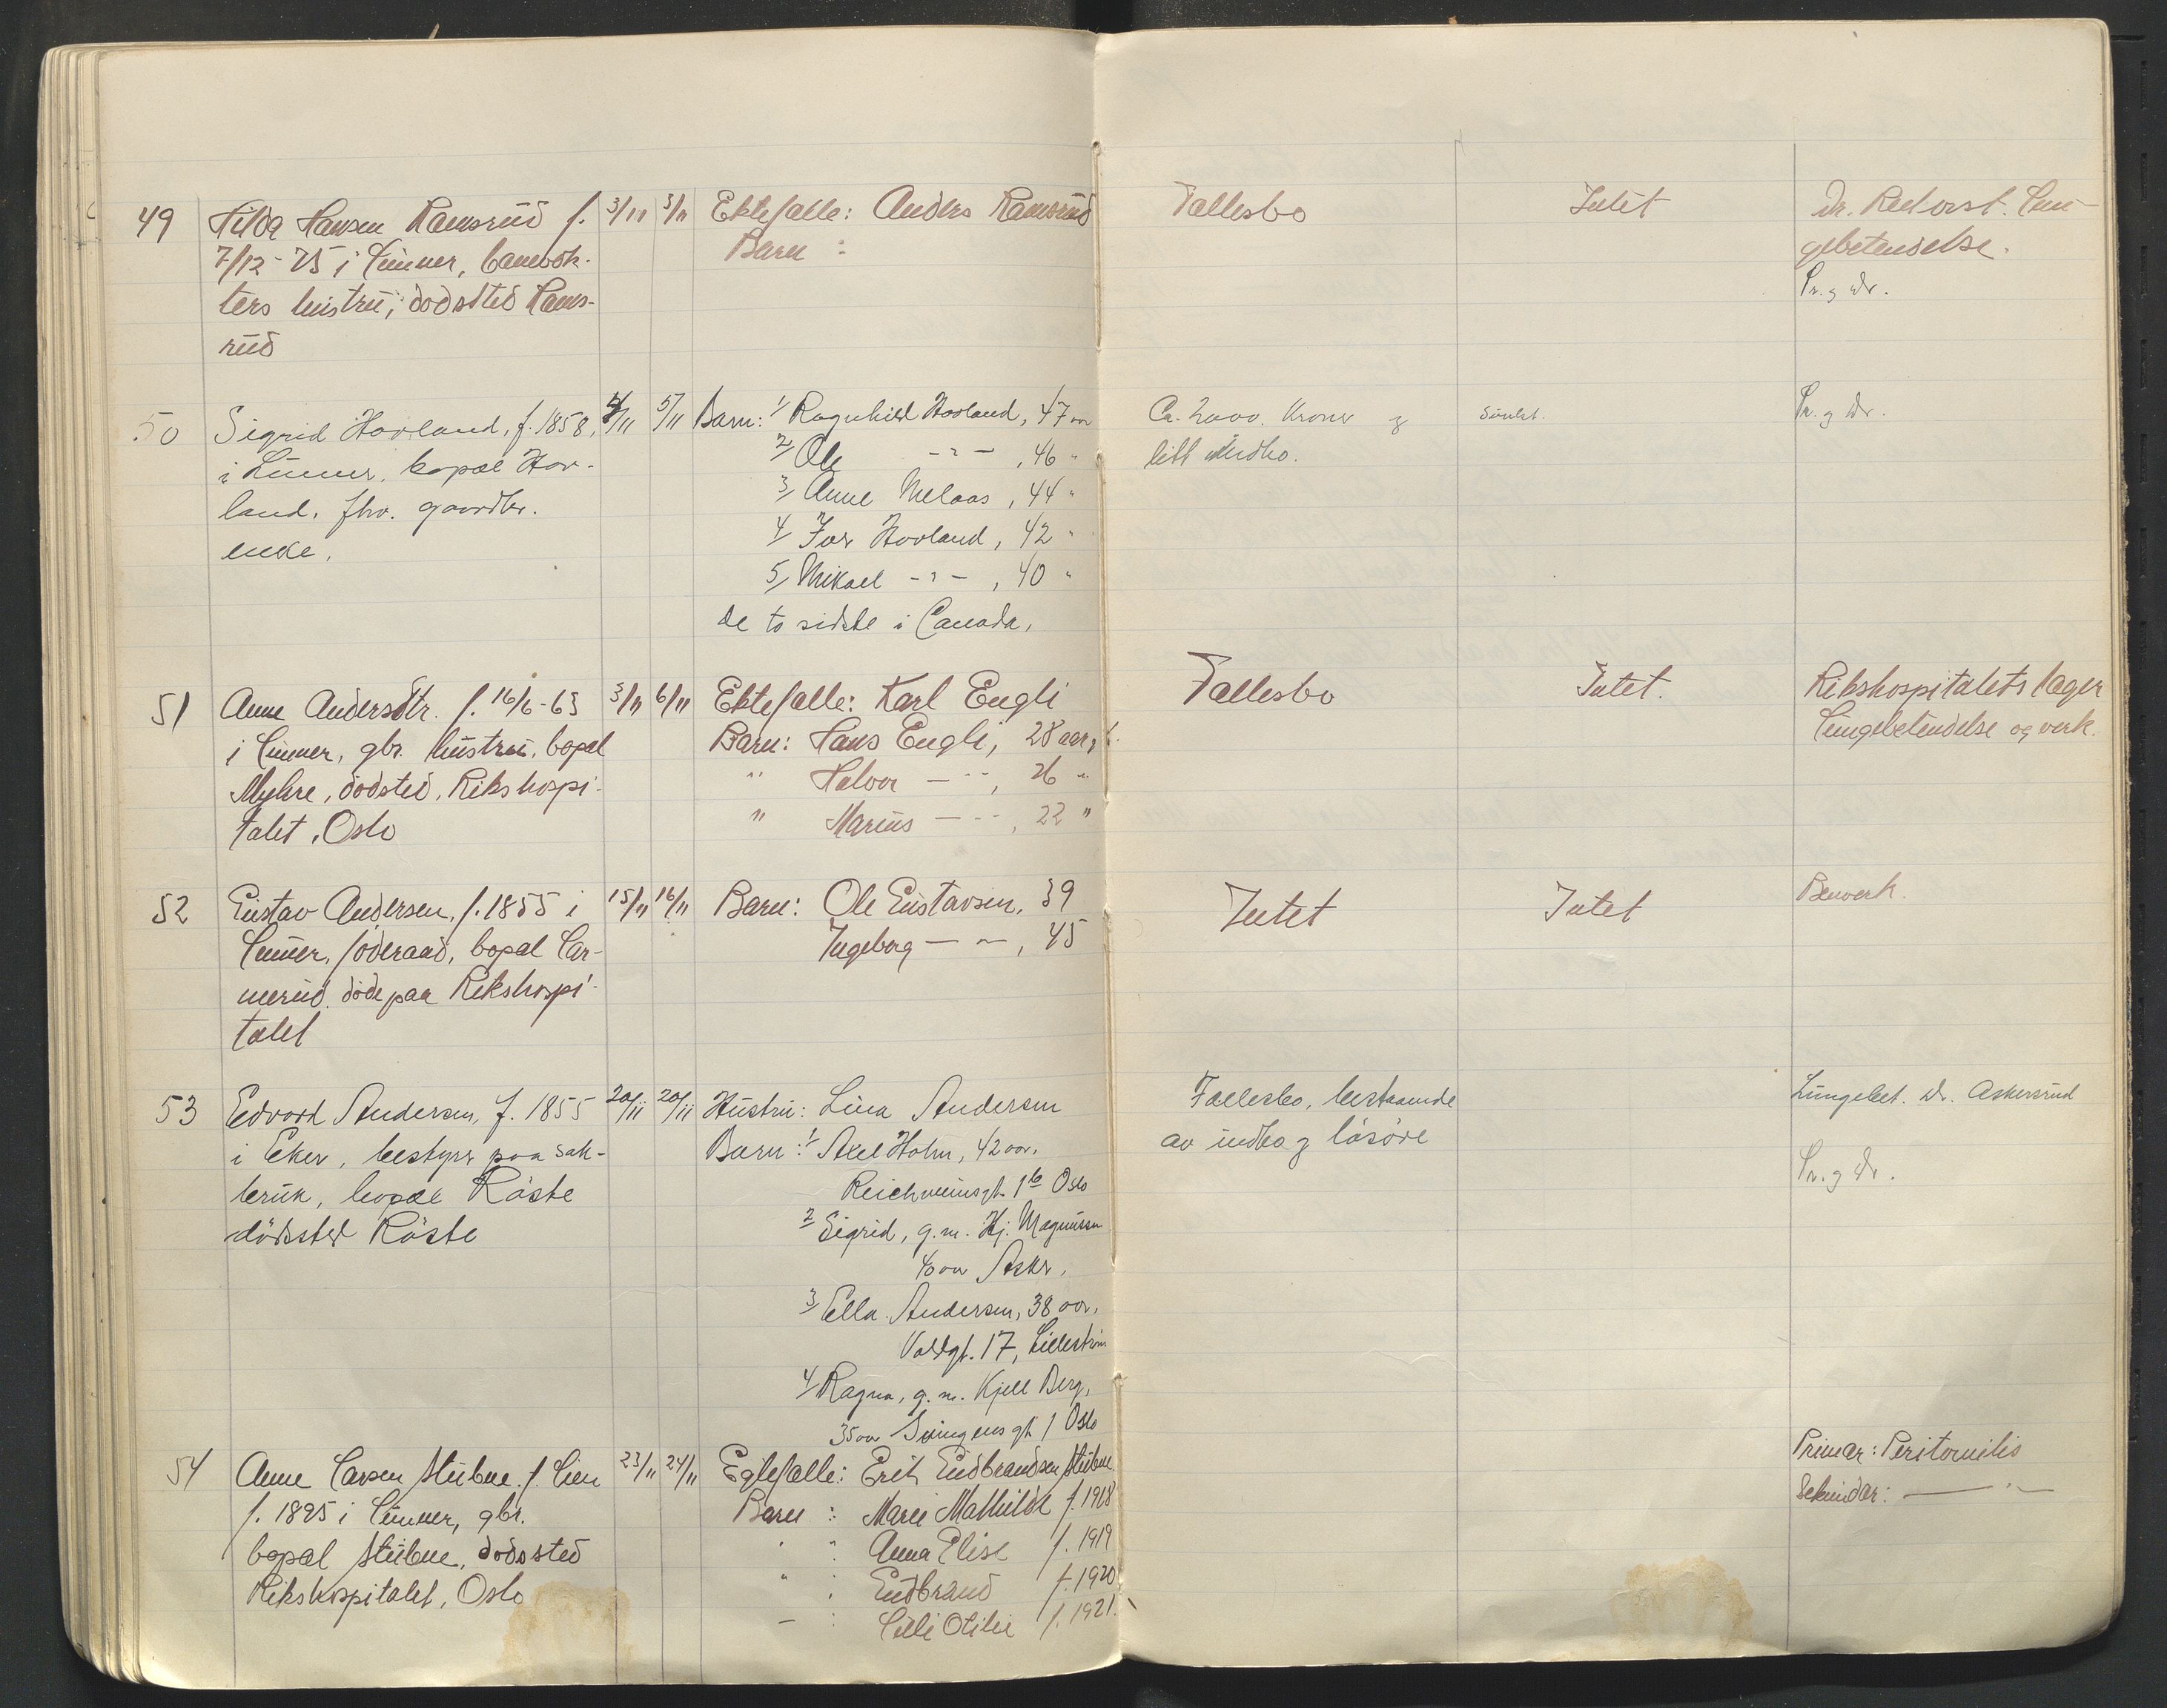 49 Hilda Hansen Ramsrud f. 3/11 3/11 Ektefælle: Anders Ramsrud Fællesbo Intet Dr. Lun-
7/12-75 i Lunner, banevok- Barn : gebetendelse.
ters hustru, dødsted Rams- Pr. g Dr.
rud
50 Sigrid Hovland, f. 1858, 4/11 5/11 Barn: 1/ Ragnhild Hovland, 47 aar Ca. 2000. Kroner g Pr. g Dr.
i Lunner, bopæl Hov- 2/ Ole -"- , 46 " litt indbo.
land. fhv. gaardbr. 3/ Anne Melaas, 44 "
enke. 4/ Ivar Hovland, 42 "
5/ Mikael -"- , 40 "
de to sidste i Canada,
51 Anne Andersdtr. f. 16/6-63 3/11 6/11 Ektefælle: Karl Engli Fællesbo Intet. Rikshospitalets læger
i Lunner, gbr. hustru, bopæl Barn: Hans Engli, 28 aar, Lungebetendelse og verk.
Myhre, dødsted, Rikshospi- " Halvor — " —, 26 "
talet, Oslo " Marius — " —, 22 "
52 Gustav Andersen, f. 1855 i 15/11 16/11 Barn: Ole Gustavsen, 39 Intet Intet Benverk.
Lunner, føderaad, bopæl Lar- Ingeborg — " —, 45
merud, døde paa Rikshospi-
talet
53 Edvard Andersen, f. 1855 20/11 20/11 Hustru: Lina Andersen Fællesbo, bestaaende Lungebet. Dr. Askersrud
i Eker, bestyrer paa sak- Barn: 1/ Axel Holm, 42 aar, av indbo g løsøre
bruk, bopæl Røste Reichweinsgt. 1 b Oslo Pr. g Dr.
dødsted Røste 2/ Sigrid, g.m. Hj. Magnussen
40 aar Asker,
3/ Ella Andersen, 38 aar,
Voldgt. 17, Lillestrøm
4/ Ragna, g.m. Kjell Berg,
35 aar gt 1 Oslo
54 Anne Larsen Stubne f. Lien 23/11 24/11 Egtefælle: Erik Gudbrandsen Stubne Primær: Peritornitis
f. 1895 i Lunner, gbr. Barn : Marie Mathilde f. 1918 Sekundær: — " —
bopæl Stubne, dødssted " : Anna Elise f. 1919
Rikshospitalet, Oslo " : Gudbrand f. 1920
— : Lilli Otilie f. 1921.